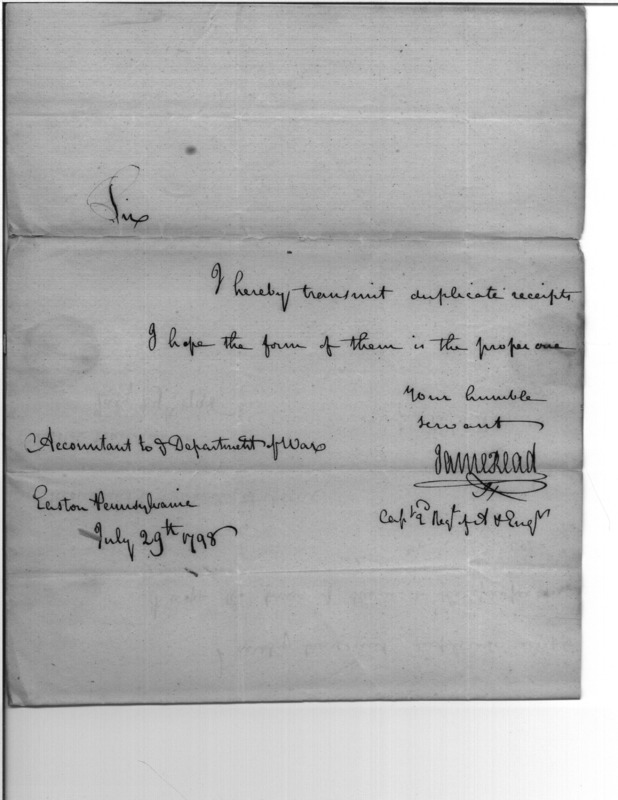 Sir
I hereby transmit duplicate receipts
I hope the form of them is the proper one
Your humble
servant
Accountant to Department of War
James Read
Easton Pennsylvania
Capt 2d Regt of A & Engrs
July 29th 1798